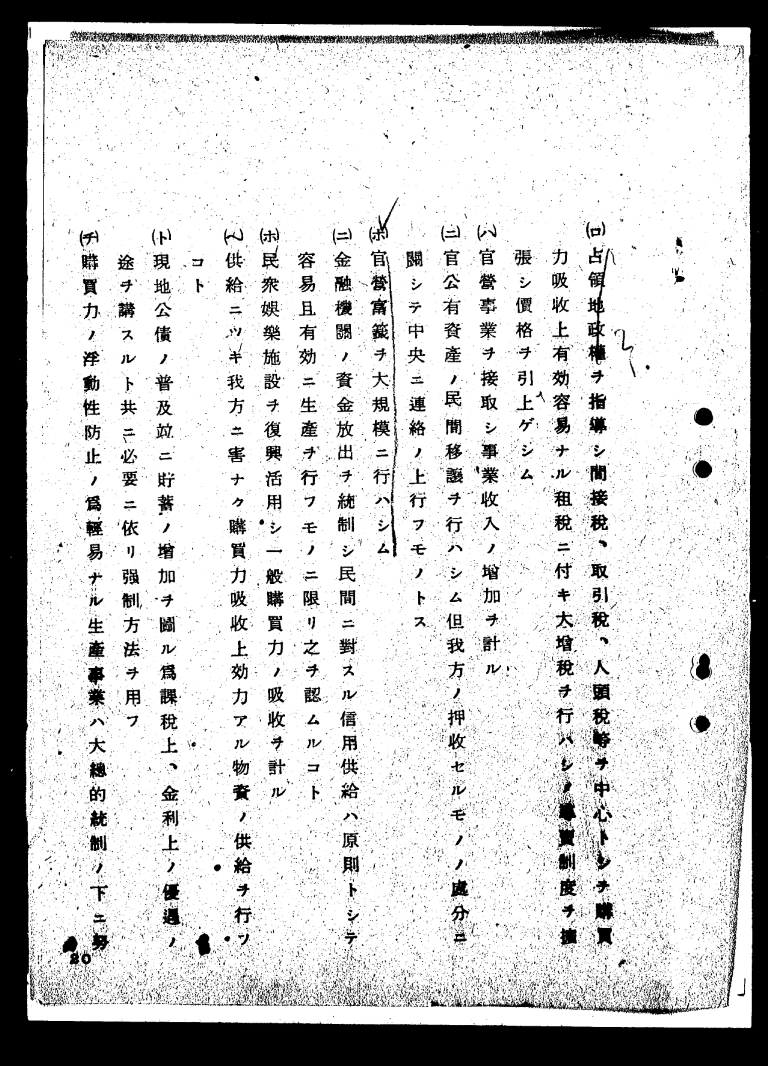 (ロ)占領地政權ヲ指導シ間接稅、取引稅、人頭稅等ヲ中心トシテ購買
力吸收上有効容易ナル租稅ニ付キ大增稅ヲ行ハシメ專賣制度ヲ擴
張シ價格ヲ引上ゲシム
(ハ)官營事業ヲ接取シ事業收入ノ增加ヲ計ル
(ニ)官公有資產ノ民間移讓ヲ行ハシム但我方ノ押收セルモノノ處分ニ
關シテ中央ニ連絡ノ上行フモノトス
(ホ)官營富籤ヲ大規模ニ行ハシム
(ニ)金融機關ノ資金放出ヲ統制シ民間ニ對スル信用供給ハ原則トシテ
容易且有効ニ生產ヲ行フモノニ限リ之ヲ認ムルコト
(ホ)民衆娛樂施設ヲ復興活用シ一般購買力ノ吸收ヲ計ル
(ヘ)供給ニツキ我方ニ害ナク購買力吸收上効力アル物資ノ供給ヲ行フ
コト
(ト)現地公債ノ普及竝ニ貯蓄ノ增加ヲ圖ル爲課稅上、金利上ノ優遇ノ
途ヲ講スルト共ニ必要ニ依リ强制方法ヲ用フ
(チ)購買力ノ浮動性防止ノ爲輕易ナル生產事業ハ大綱的統制ノ下ニ努
20